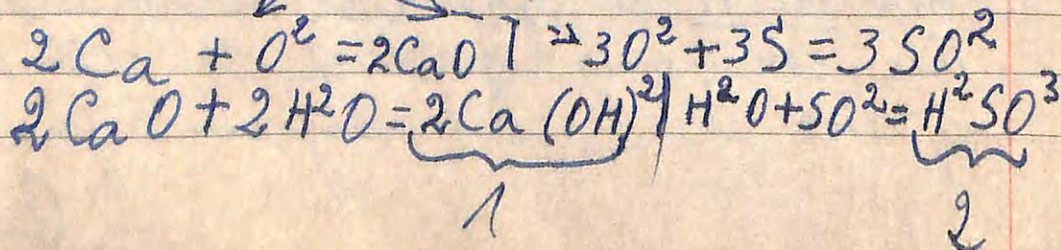 2Ca + O² = 2CaO | 3O² + 3S = 3SO²
2CaO + 2H²O = 2Ca(OH)² | H²O + SO² = H²SO³
1 2